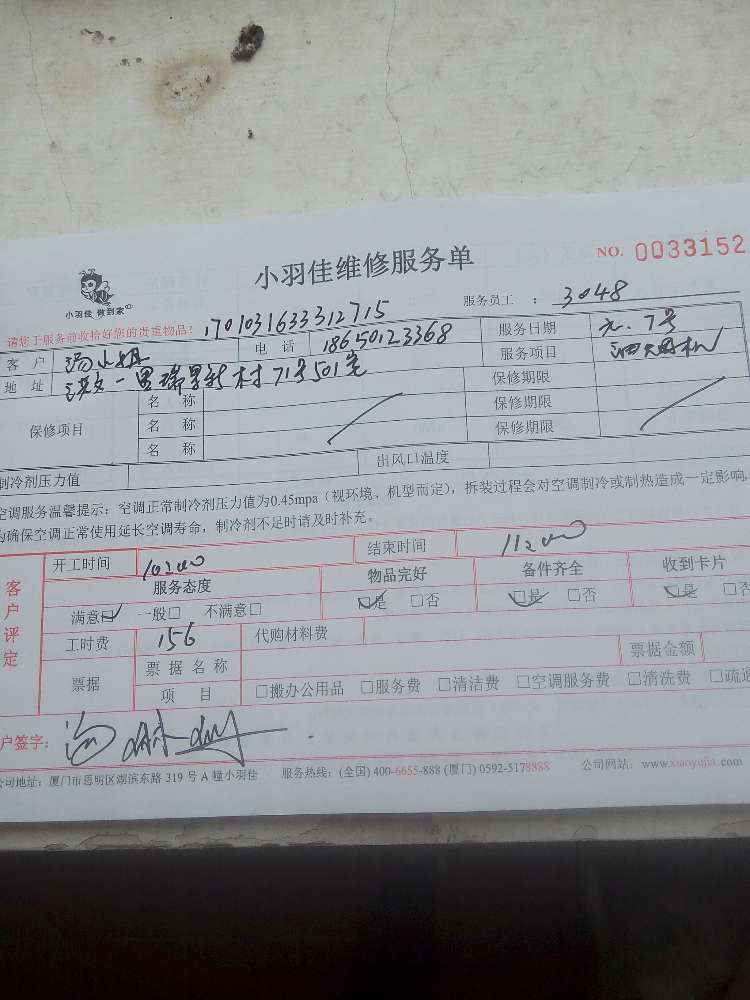 小羽佳维修服务单
NO. 0033152
小羽佳 做到家
请您于服务前收拾好您的贵重物品！ 1701031633312715
服务员工 ： 3048
客 户 汤小姐 电 话 18650123368 服务日期 元.7号
地 址 一里瑞景新村71号501室 服务项目
保修项目 名 称 保修期限
名 称 保修期限
名 称 保修期限
制冷剂压力值 出风口温度
空调服务温馨提示：空调正常制冷剂压力值为0.45mpa（视环境、机型而定），拆装过程会对空调制冷或制热造成一定影响，
为确保空调正常使用延长空调寿命，制冷剂不足时请及时补充。
客户评定
开工时间 10:00 结束时间 11:00
服务态度 物品完好 备件齐全 收到卡片
满意☑ 一般□ 不满意□ ☑是 □否 ☑是 □否 ☑是 □否
工时费 156 代购材料费
票据 票 据 名 称 票据金额
项 目 □搬办公用品 □服务费 □清洁费 □空调服务费 □清洗费 □疏通
户签字： 汤
公司地址：厦门市思明区湖滨东路 319 号 A 幢小羽佳 服务热线：(全国) 400-6655-888 (厦门) 0592-5178888 公司网站：www.xiaoyujia.com